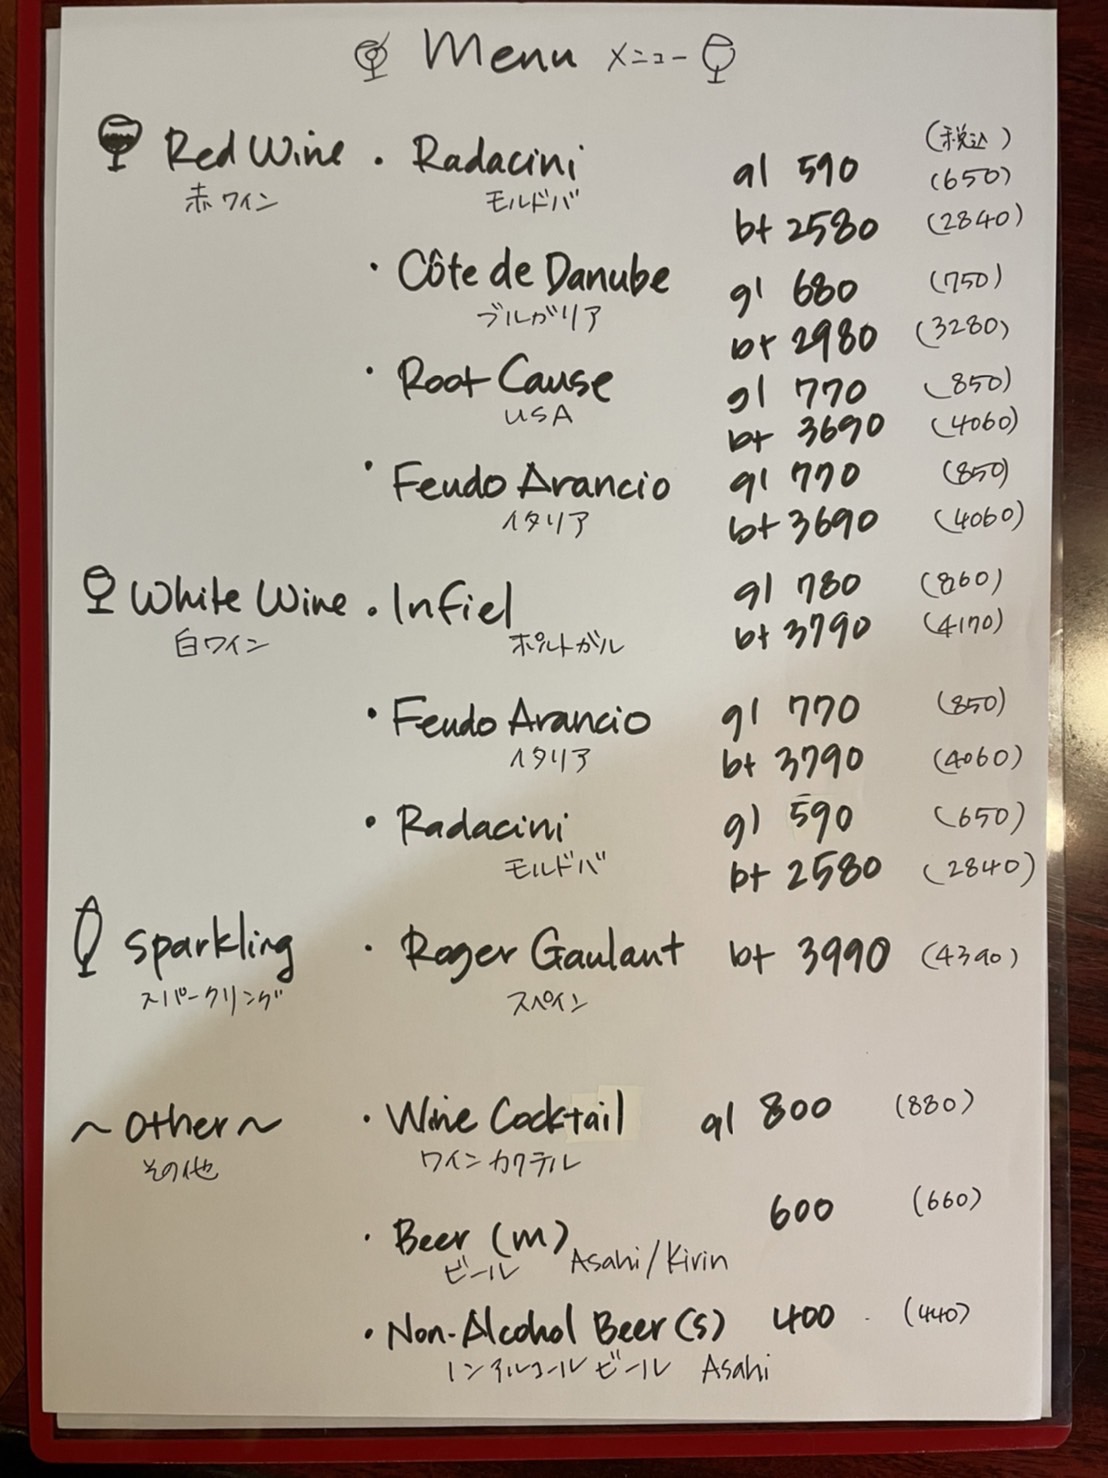 Menu メニュー
(税込)
Red Wine ・ Radacini gl 590 (650)
赤ワイン モルドバ bt 2580 (2840)
・ Côte de Danube gl 680 (750)
ブルガリア bt 2980 (3280)
・ Root Cause gl 770 (850)
USA bt 3690 (4060)
・ Feudo Arancio gl 770 (850)
イタリア bt 3690 (4060)
White Wine ・ Infiel gl 780 (860)
白ワイン ポルトガル bt 3790 (4170)
・ Feudo Arancio gl 770 (850)
イタリア bt 3790 (4060)
・ Radacini gl 590 (650)
モルドバ bt 2580 (2840)
Sparkling ・ Roger Gaulant bt 3990 (4390)
スパークリング スペイン
~ Other ~ ・ Wine Cocktail gl 800 (880)
その他 ワインカクテル
・ Beer (m) 600 (660)
ビール Asahi/Kirin
・ Non-Alcohol Beer (s) 400 (440)
ノンアルコールビール Asahi